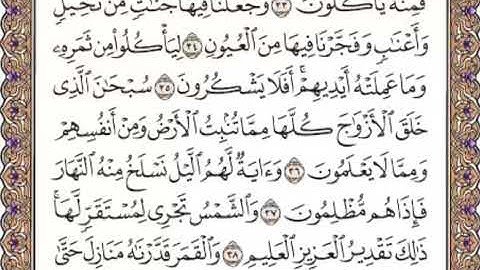 فَمِنْهُ يَأْكُلُونَ ٣٣ وَجَعَلْنَا فِيهَا جَنَّٰتٍ مِّن نَّخِيلٍ
وَأَعْنَٰبٍ وَفَجَّرْنَا فِيهَا مِنَ ٱلْعُيُونِ ٣٤ لِيَأْكُلُوا۟ مِن ثَمَرِهِۦ
وَمَا عَمِلَتْهُ أَيْدِيهِمْ ۖ أَفَلَا يَشْكُرُونَ ٣٥ سُبْحَٰنَ ٱلَّذِى
خَلَقَ ٱلْأَزْوَٰجَ كُلَّهَا مِمَّا تُنۢبِتُ ٱلْأَرْضُ وَمِنْ أَنفُسِهِمْ
وَمِمَّا لَا يَعْلَمُونَ ٣٦ وَءَايَةٌ لَّهُمُ ٱلَّيْلُ نَسْلَخُ مِنْهُ ٱلنَّهَارَ
فَإِذَا هُم مُّظْلِمُونَ ٣٧ وَٱلشَّمْسُ تَجْرِى لِمُسْتَقَرٍّ لَّهَا ۚ
ذَٰلِكَ تَقْدِيرُ ٱلْعَزِيزِ ٱلْعَلِيمِ ٣٨ وَٱلْقَمَرَ قَدَّرْنَٰهُ مَنَازِلَ حَتَّىٰ